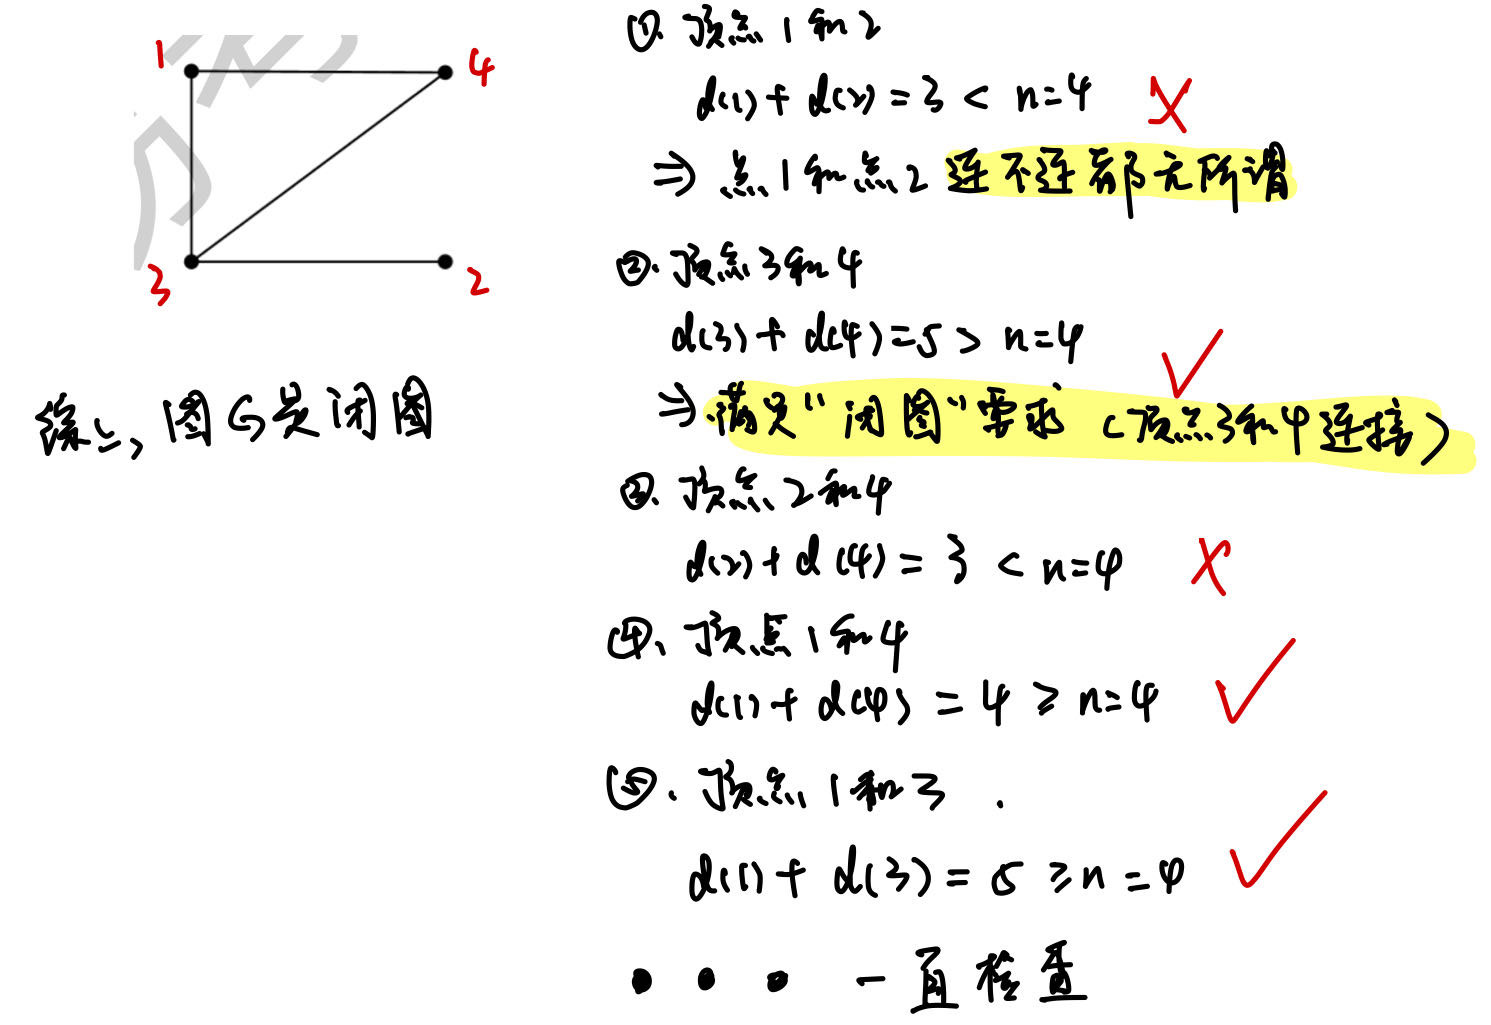 1
4
3
2
综上，图G是闭图
①. 顶点1和2
d(1) + d(2) = 3 < n=4 ✗
⇒ 点1和点2 连不连都无所谓
②. 顶点3和4
d(3) + d(4) = 5 > n=4 ✓
⇒ 满足“闭图”需求（顶点3和4连接）
③. 顶点2和4
d(2) + d(4) = 3 < n=4 ✗
④. 顶点1和4
d(1) + d(4) = 4 ≥ n=4 ✓
⑤. 顶点1和3 .
d(1) + d(3) = 5 ≥ n=4 ✓
• • • 一直检查